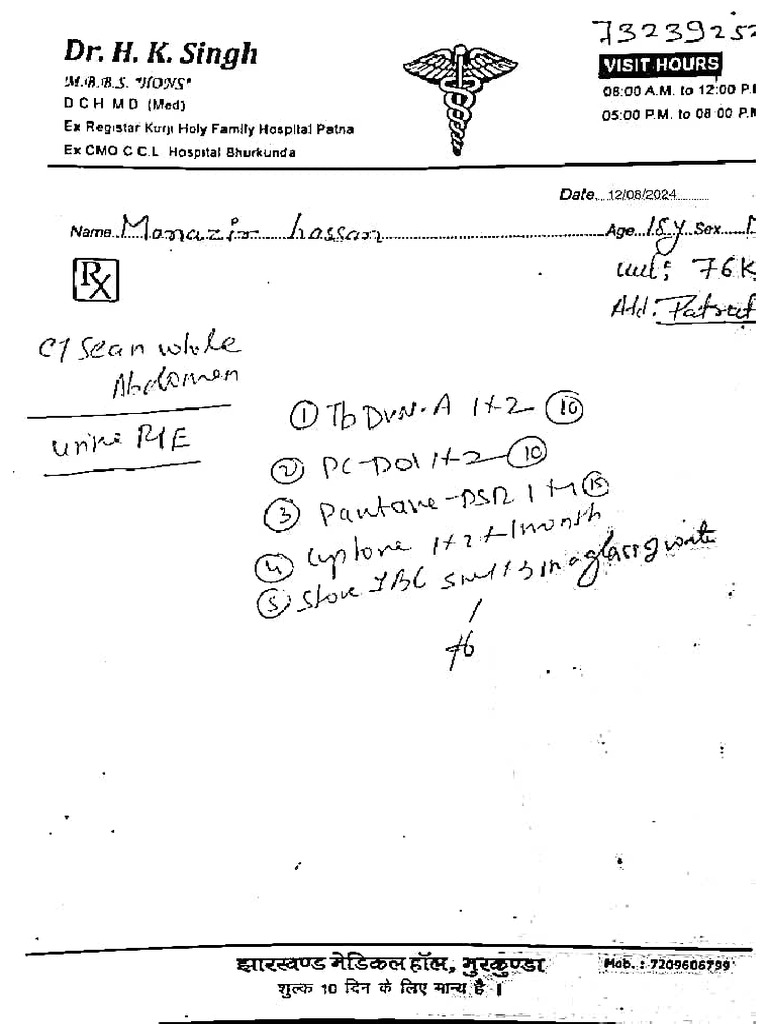 7323925
Dr. H. K. Singh
M.B.B.S. "HONS"
D C H M D (Med)
Ex Registar Kurji Holy Family Hospital Patna
Ex CMO C.C.L Hospital Bhurkunda
VISIT HOURS
08:00 A.M. to 12:00 P.
05:00 P.M. to 08 00 P.
Date. 12/08/2024
Name Manazir hassan Age 18y Sex
Rx
wt: 76K
Add: Patrat
CT Scan whole
Abdomen
urine R/E
① Tb 1+2 ⑩
② 1+2 ⑩
③ -DSR 1 ⑮
④ 1+2+1 month
⑤ Stone in a glass of water
झारखण्ड मेडिकल हॉल, भुरकुण्डा
Mob. : 7209606799
शुल्क 10 दिन के लिए मान्य है ।